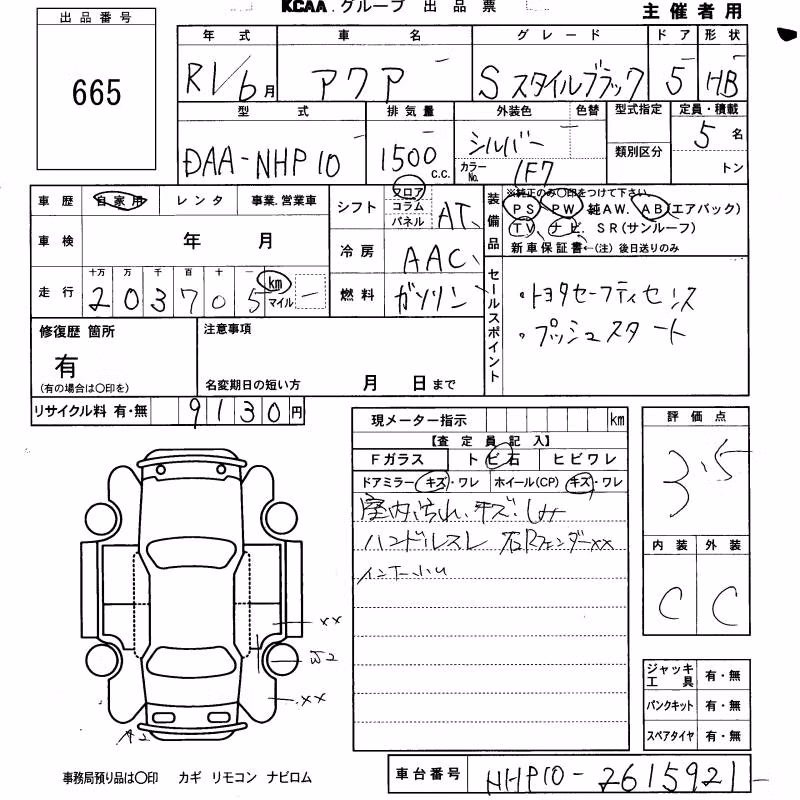 KCAA.グループ 出品票
主催者用
出品番号
665
年式 車名 グレード ドア 形状
R1/6月 アクア Sスタイルブラック 5 HB
型式 排気量 外装色 色替 型式指定 定員・積載
DAA-NHP10 1500 c.c. シルバー 5名
カラーNo. 1F7 類別区分 トン
車歴 自家用 レンタ 事業.営業車
車検 年 月
走行 十万 万 千 百 十 一 km マイル
203705
シフト フロア コラム パネル AT
冷房 AAC
燃料 ガソリン
装備品
※純正のみ〇印をつけて下さい。
PS PW 純AW. AB(エアバック)
TV ナビ. SR(サンルーフ)
新車保証書←(注)後日送りのみ
セールスポイント
・トヨタセーフティセンス
・プッシュスタート
修復歴 箇所
有
(有の場合は〇印を)
注意事項
名変期日の短い方 月 日まで
リサイクル料 有・無 9130円
現メーター指示 km
【査定員記入】
Fガラス トビ石 ヒビワレ
ドアミラー キズ・ワレ ホイール(CP) キズ・ワレ
室内汚れ、キズ、しみ
ハンドルスレ 右Rフェンダー××
評価点
3.5
内装 外装
C C
××
××
ジャッキ工具 有・無
パンクキット 有・無
スペアタイヤ 有・無
事務局預り品は〇印 カギ リモコン ナビロム
車台番号 NHP10-2615921